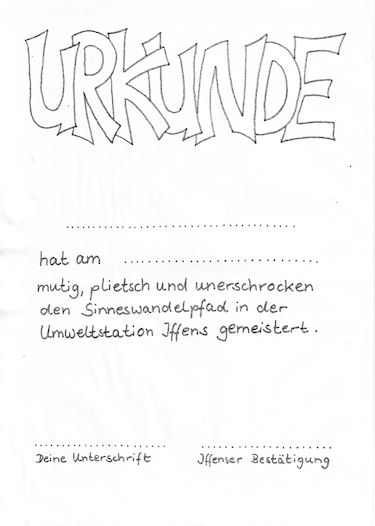 URKUNDE
........................................
hat am ..................................
mutig, plietsch und unerschrocken
den Sinneswandelpfad in der
Umweltstation Iffens gemeistert.
........................ ........................
Deine Unterschrift Iffenser Bestätigung